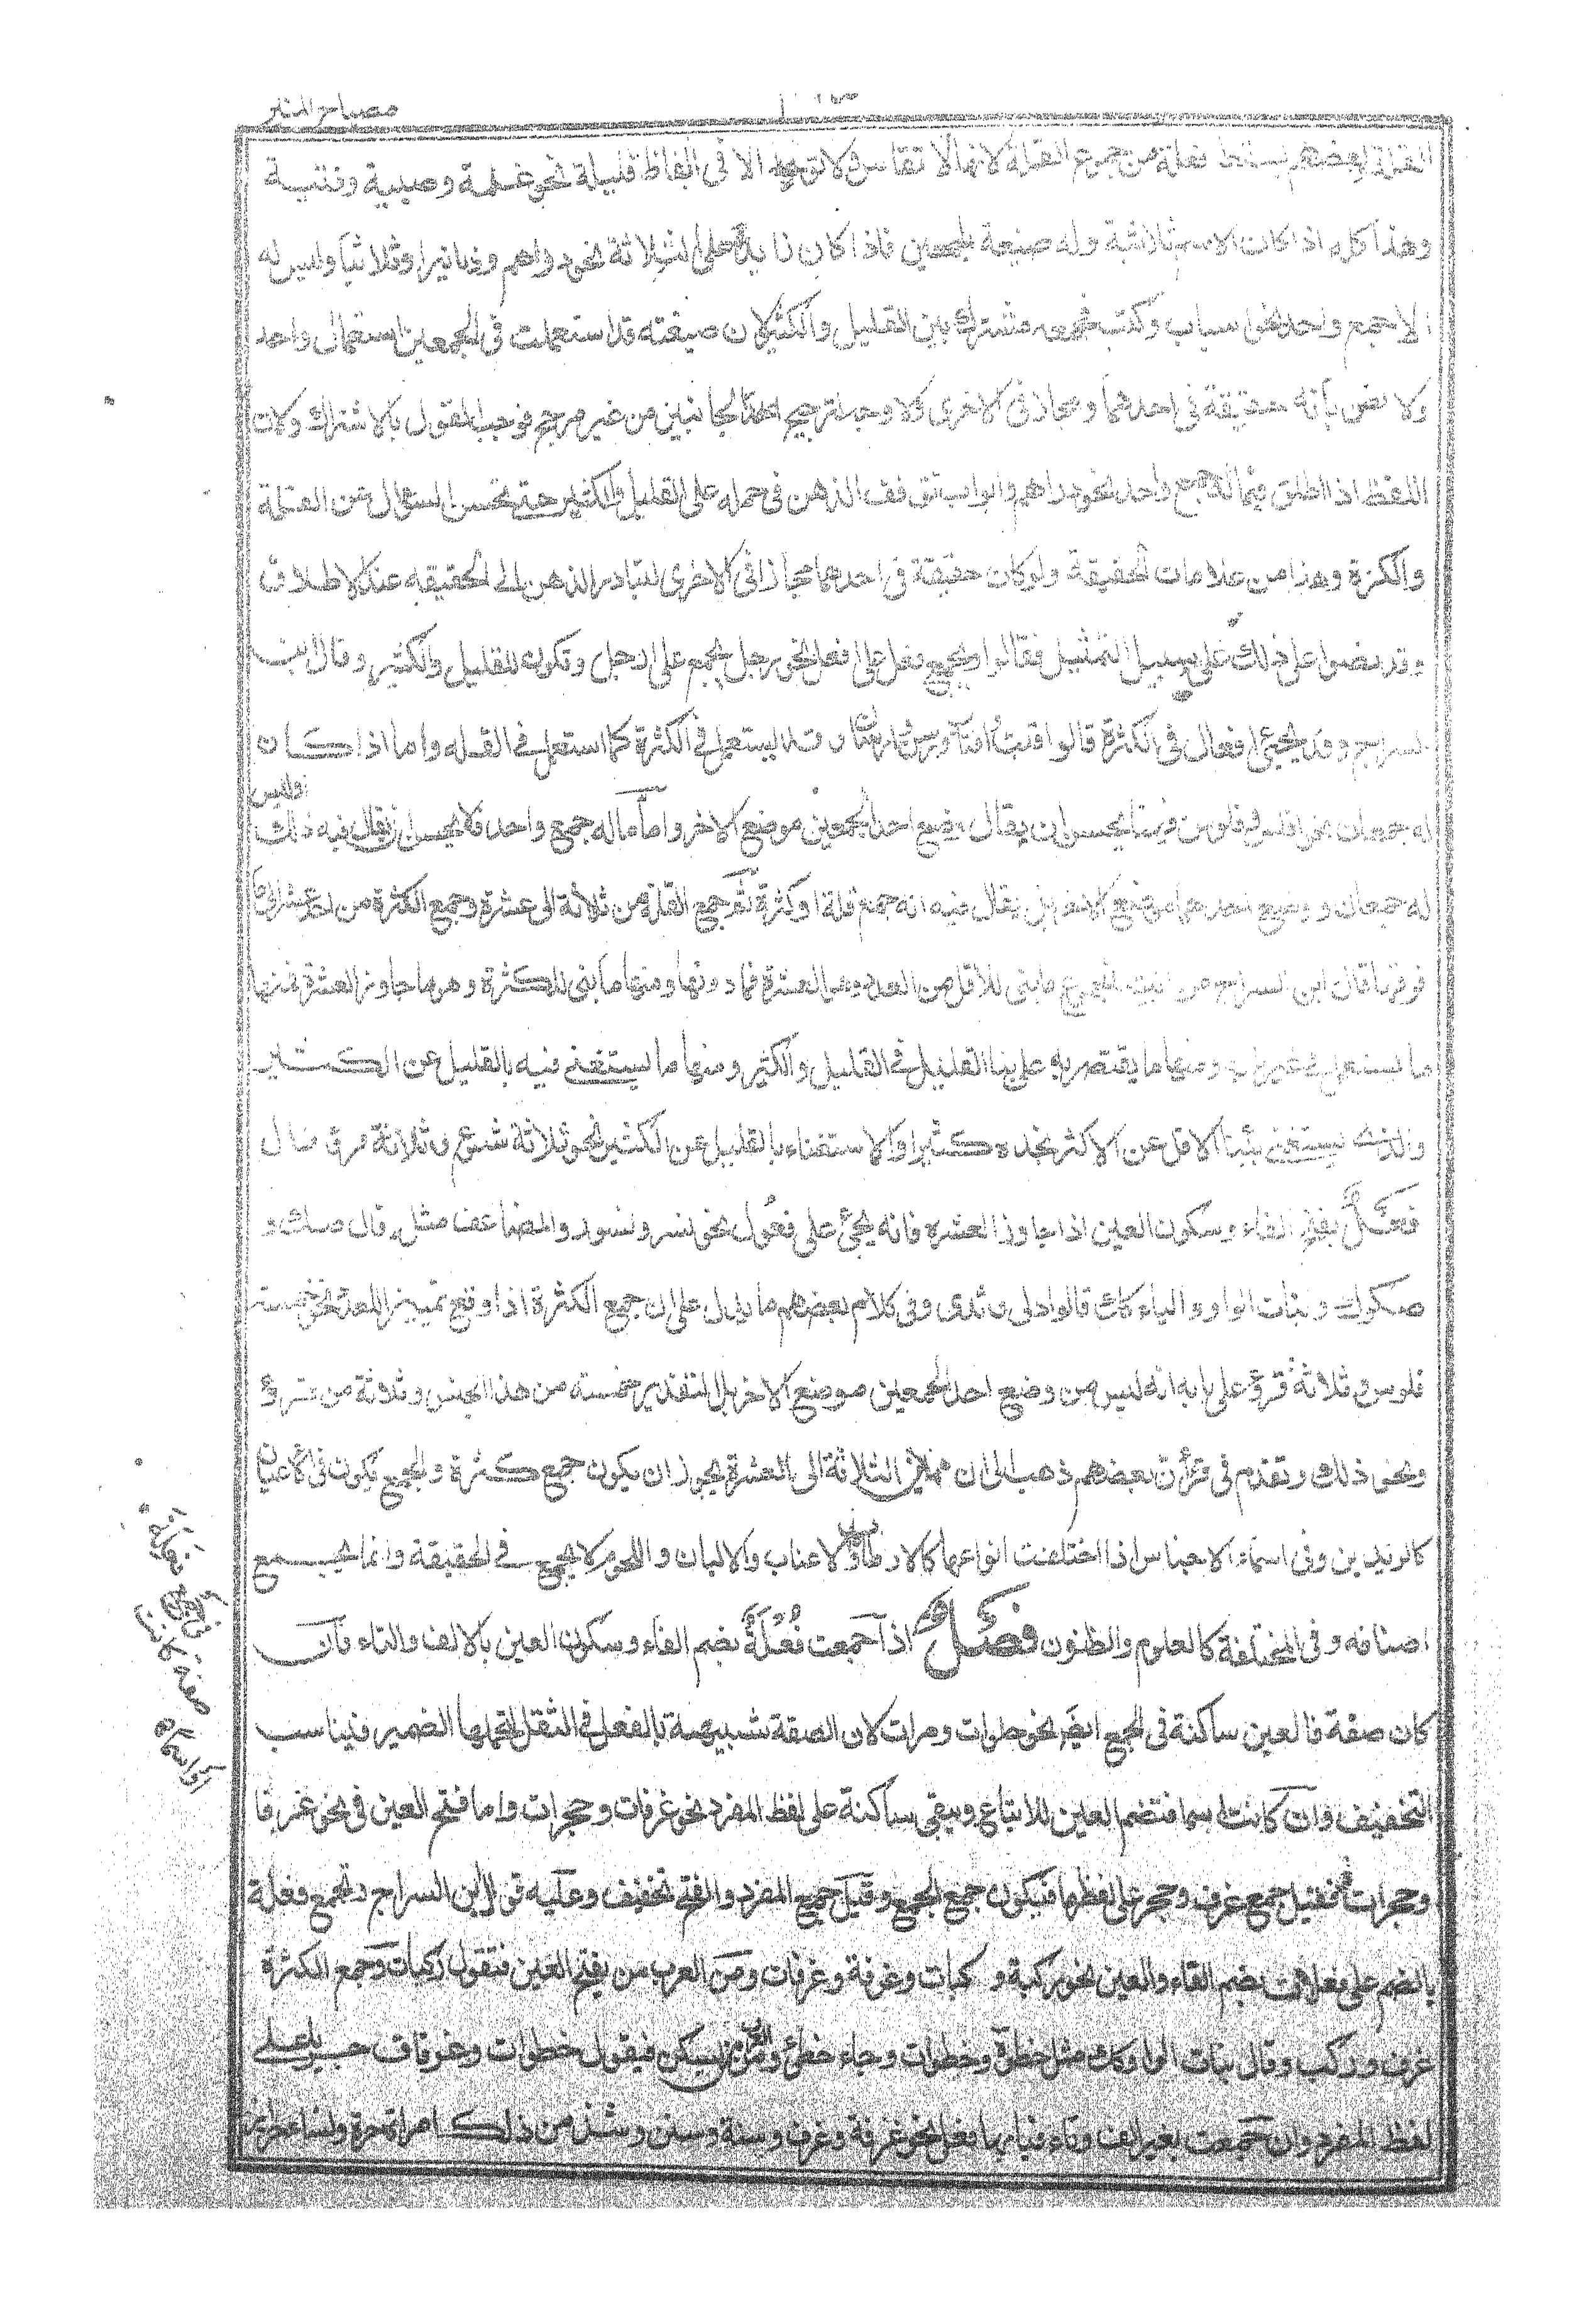 مصباح المنير
القلة وبعضهم يسقط فعلة من جموع القلة لانها لا تقاس ولا توجد الا فى الفاظ قليلة نحو غلمة وصبية وفتية
وهذا كله اذا كان الاسم ثلاثية وله صيغة الجمعين فاذا كان زايدا على الثلاثة نحو دراهم ودنانير او ثلاثيا وليس له
الا جمع واحد نحو اسباب وكتب فجمعه مشترك بين القليل والكثير لان صيغته قد استعملت فى الجمعين استعمال واحد
ولا نص بانه حقيقة فى احدهما ومجاز فى الاخرى ولا وجه لترجيح احد الجانبين من غير مرجح فوجب القول بالاشتراك ولان
اللفظ اذا اطلق فيما له جمع واحد نحو دراهم واثواب توقف الذهن فى حمله على القليل والكثير حتى يحسن السؤال عن القلة
والكثرة وهذا من علامات الحقيقة ولو كان حقيقة فى احدهما مجازا فى الاخرى لتبادر الذهن الى الحقيقه عند الاطلاق
وقد نصوا على ذلك على سبيل التمثيل فقالوا ويجمع فعل على افعل نحو رجل يجمع على ارجل وتكون للقليل والكثير وقال ابن
السراج وقد يجيئ افعال فى الكثرة قالوا قتب واقتاب ورسن وارسان وقد يستعمل فى الكثرة كما استعمل فى القله واما اذا كان
وليس
له جمعان نحو افلس وفلوس فهنا يحسن ان يقال وضع احد الجمعين موضع الاخر واما ما له جمع واحد فلا يحسن ان يقال فيه ذلك
له جمعان ووضع احدهما موضع الاخر بل يقال فيه انه جمع قلة او كثرة ثم جمع القلة من ثلاثة الى عشرة وجمع الكثرة من احد عشر الى ما
فوقها قال ابن السراج من ابنية الجموع ما بنى للاقل من العدد وهو العشرة فما دونها ومنها ما بنى للكثرة وهو ما جاوز العشرة فمنها
ما يستعمل فى غير بابه ومنها ما يقتصر به على بنا القليل فى القليل والكثير ومنها ما يستغنى فيه بالقليل عن الكثير
والذى يستغنى ببنا الاقل عن الاكثر نجده كثيرا والاستغناء بالقليل عن الكثير نحو ثلاثة شسوع وثلاثة قروء قال
فعل بفتح الفاء وسكون العين اذا جاوز العشره فانه يجئ على فعول نحو نسر ونسور والمضاعف مثله قال صك و
صكوك وبنات الواو والياء كذلك قالوا دلى وثدى وفى كلام بعضهم ما يدل على ان جمع الكثرة اذا وقع تمييز العدد نحو خمسة
فلوس وثلاثة قروء على بابه انه ليس من وضع احد الجمعين موضع الاخر بل التقدير خمسة من هذا الجنس وثلاثة من قروء
ونحو ذلك وتقدم فى قرأ ان بعضهم ذهب الى ان مميز الثلاثة الى العشرة يجوز ان يكون جمع كثرة والجمع يكون فى الاعيان
كالزيدين وفى اسماء الاجناس اذا اختلفت انواعها كالارطاب والاعناب والالبان واللحوم لا يجمع فى الحقيقة وانما يجمع
اصنافه وفى المختلفة كالعلوم والظنون فصل اذا جمعت فعلة بضم الفاء وسكون العين بالالف والتاء فان
كان صفة فالعين ساكنة فى الجمع ايضا نحو حلوات ومرات لان الصفة شبيهة بالفعل فى الثقل لتحملها الضمير فيناسب
التخفيف وان كانت اسما فتضم العين للاتباع ويبقى ساكنة على لفظ المفرد نحو غرفات وحجرات واما فتح العين فى نحو غرفا
وحجرات فقيل جمع غرف وحجر على لفظها فيكون جمع الجمع وقيل جمع المفرد والفتح تخفيف وعليه قول ابن السراج وتجمع فعلة
بالضم على فعلات بضم الفاء والعين نحو ركبة وركبات وغرفة وغرفات ومن العرب من يفتح العين فتقول ركبات وجمع الكثرة
غرف وركب وقال بنات الواو كذلك مثل خطوة وخطوات وجاء خطى ومن العرب من يسكن فيقول خطوات وغرفات جريا على
لفظ المفرد وان جمعت بغير الف وتاء فبابها فعل نحو غرفة وغرف وسنة وسنن وشذ من ذلك امراة حرة ونساء حرائر